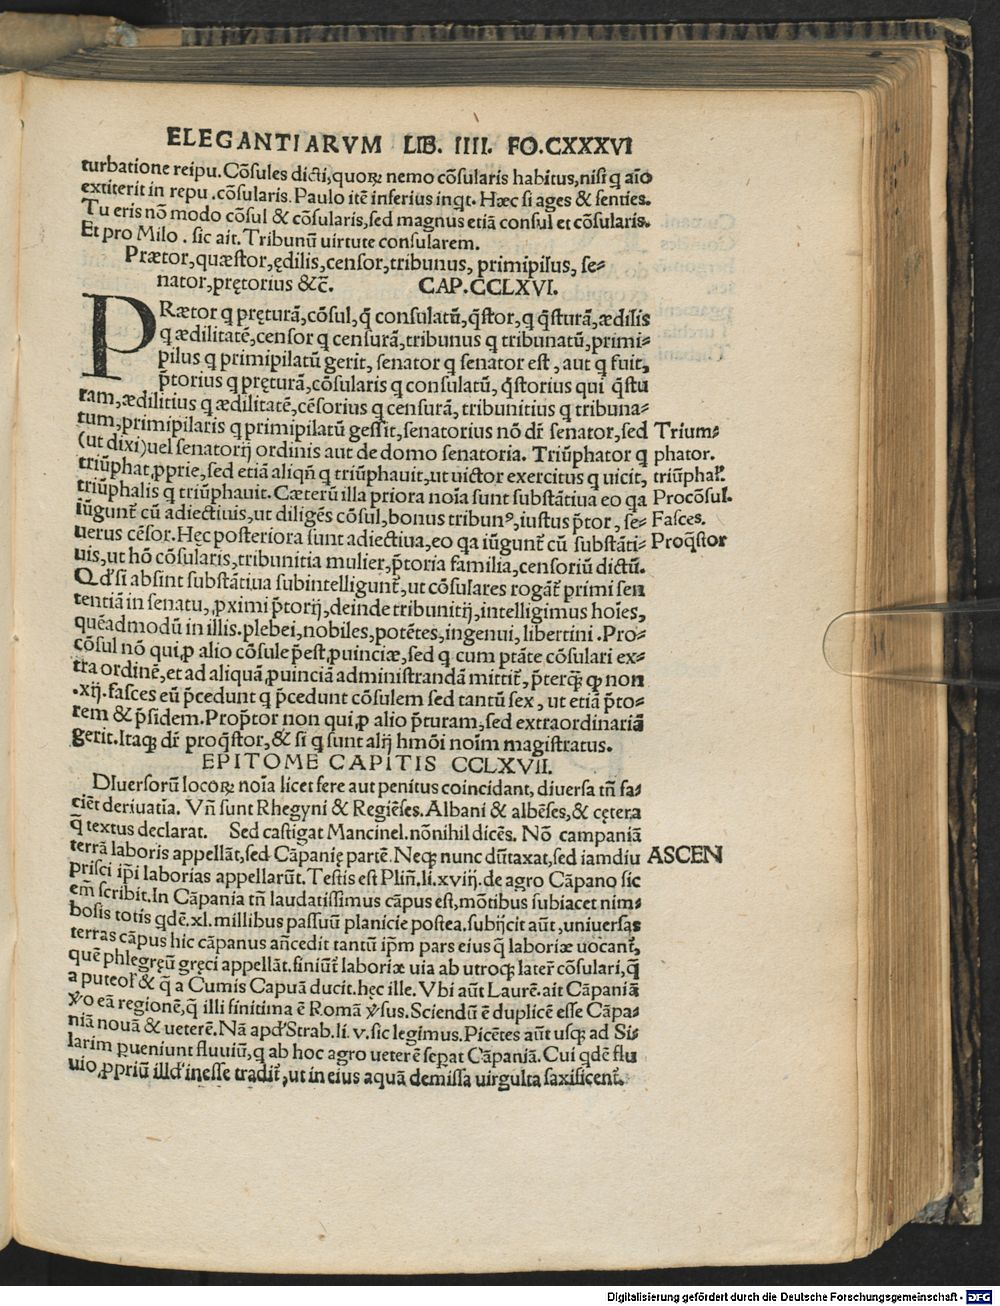 ELEGANTIARVM LIB. IIII. FO.CXXXVI
turbatione reipu. Cõsules dicti,quoꝝ nemo cõsularis habitus,nisi q aĩo
extiterit in repu.cõsularis. Paulo itẽ inferius inqt. Hæc si ages & senties.
Tu eris nõ modo cõsul & cõsularis,sed magnus etiã consul et cõsularis.
Et pro Milo. sic ait. Tribunũ uirtute consularem.
Prætor,quæstor,ędilis,censor,tribunus, primipilus, se⸗
nator,prętorius &c̃. CAP.CCLXVI.
PRætor q pręturã,cõsul,q̃ consulatũ,q̃stor,q q̃sturã,ædilis
q ædilitatẽ,censor q censurã,tribunus q tribunatũ,primi⸗
pilus q primipilatũ gerit, senator q senator est, aut q fuit,
p̃torius q pręturã,cõsularis q consulatũ, q̃storius qui q̃stu
ram,ædilitius q ædilitatẽ,cẽsorius q censurã, tribunitius q tribuna⸗
tum,primipilaris q primipilatũ gessit,senatorius nõ dr̃ senator,sed
(ut dixi)uel senatorij ordinis aut de domo senatoria. Triũphator q
triũphat,ꝓprie,sed etiã aliqñ q triũphauit,ut uictor exercitus q uicit,
triũphalis q triũphauit. Cæterũ illa priora noĩa sunt substãtiua eo qa
iũgunt̃ cũ adiectiuis,ut diligẽs cõsul,bonus tribunꝰ,iustus p̃tor, se⸗
uerus cẽsor. Hęc posteriora sunt adiectiua,eo qa iũgunt̃ cũ substãti⸗
uis,ut hõ cõsularis,tribunitia mulier,p̃toria familia,censoriũ dictũ.
Qd' si absint substãtiua subintelligunt̃,ut cõsulares rogãt̃ primi sen
tentiã in senatu,,ꝓximi p̃torij,deinde tribunitij,intelligimus hoĩes,
quẽadmodũ in illis.plebei,nobiles,potẽtes,ingenui,libertini.Pro⸗
cõsul nõ qui,ꝓ alio cõsule p̃est,ꝓuinciæ,sed q cum ptãte cõsulari ex⸗
tra ordinẽ,et ad aliquã,ꝓuinciã administrandã mittit̃, p̃terqꝫ qꝙ non
.xij.fasces eũ p̃cedunt q p̃cedunt cõsulem sed tantũ sex, ut etiã p̃to⸗
rem & p̃sidem.Prop̃tor non qui,ꝓ alio p̃turam,sed extraordinariã
gerit.Itaqꝫ dr̃ proq̃stor,& si q sunt alij hmõi noĩm magistratus.
Trium⸗
phator.
triũphaľ.
Procõsul.
Fasces.
Proq̃stor
EPITOME CAPITIS CCLXVII.
DIuersorũ locoꝝ noĩa licet fere aut penitus coincidant, diuersa tñ fa⸗
ciẽt deriuatia. Vñ sunt Rhegyni & Regiẽses. Albani & albẽses,& cętera
q̃ textus declarat. Sed castigat Mancinel.nõnihil dicẽs. Nõ campaniã
terrã laboris appellãt,sed Cãpanię partẽ. Neqꝫ nunc dũtaxat,sed iamdiu
prisci ip̃i laborias appellarũt. Testis est Plin̄.li.xviij.de agro Cãpano sic
em̃ scribit.In Cãpania tñ laudatissimus cãpus est,mõtibus subiacet nim⸗
bosis totis qdẽ.xl.millibus passuũ planicie postea.subijcit aũt,uniuersas
terras cãpus hic cãpanus añcedit tantũ ip̃m pars eius q̃ laboriæ uocant̃,
quẽ phlegręũ gręci appellãt.finiũt̃ laboriæ uia ab utroqꝫ later̃ cõsulari,q̃
a puteoľ & q̃ a Cumis Capuã ducit.hęc ille. Vbi aũt Laurẽ.ait Cãpaniã
ṽo eã regionẽ,q̃ illi finitima ẽ Romã ṽsus.Sciendũ ẽ duplicẽ esse Cãpa⸗
niã nouã & ueterẽ. Nã apd' Strab.li. v.sic legimus.Picẽtes aũt usqꝫ ad Si⸗
larim ꝑueniunt fluuiũ,q ab hoc agro ueterẽ seꝑat Cãpaniã. Cui qdẽ flu
uio,ꝓpriũ illd' inesse tradit̃,ut in eius aquã demissa uirgulta saxificent̃.
ASCEN
Digitalisierung gefördert durch die Deutsche Forschungsgemeinschaft - DFG